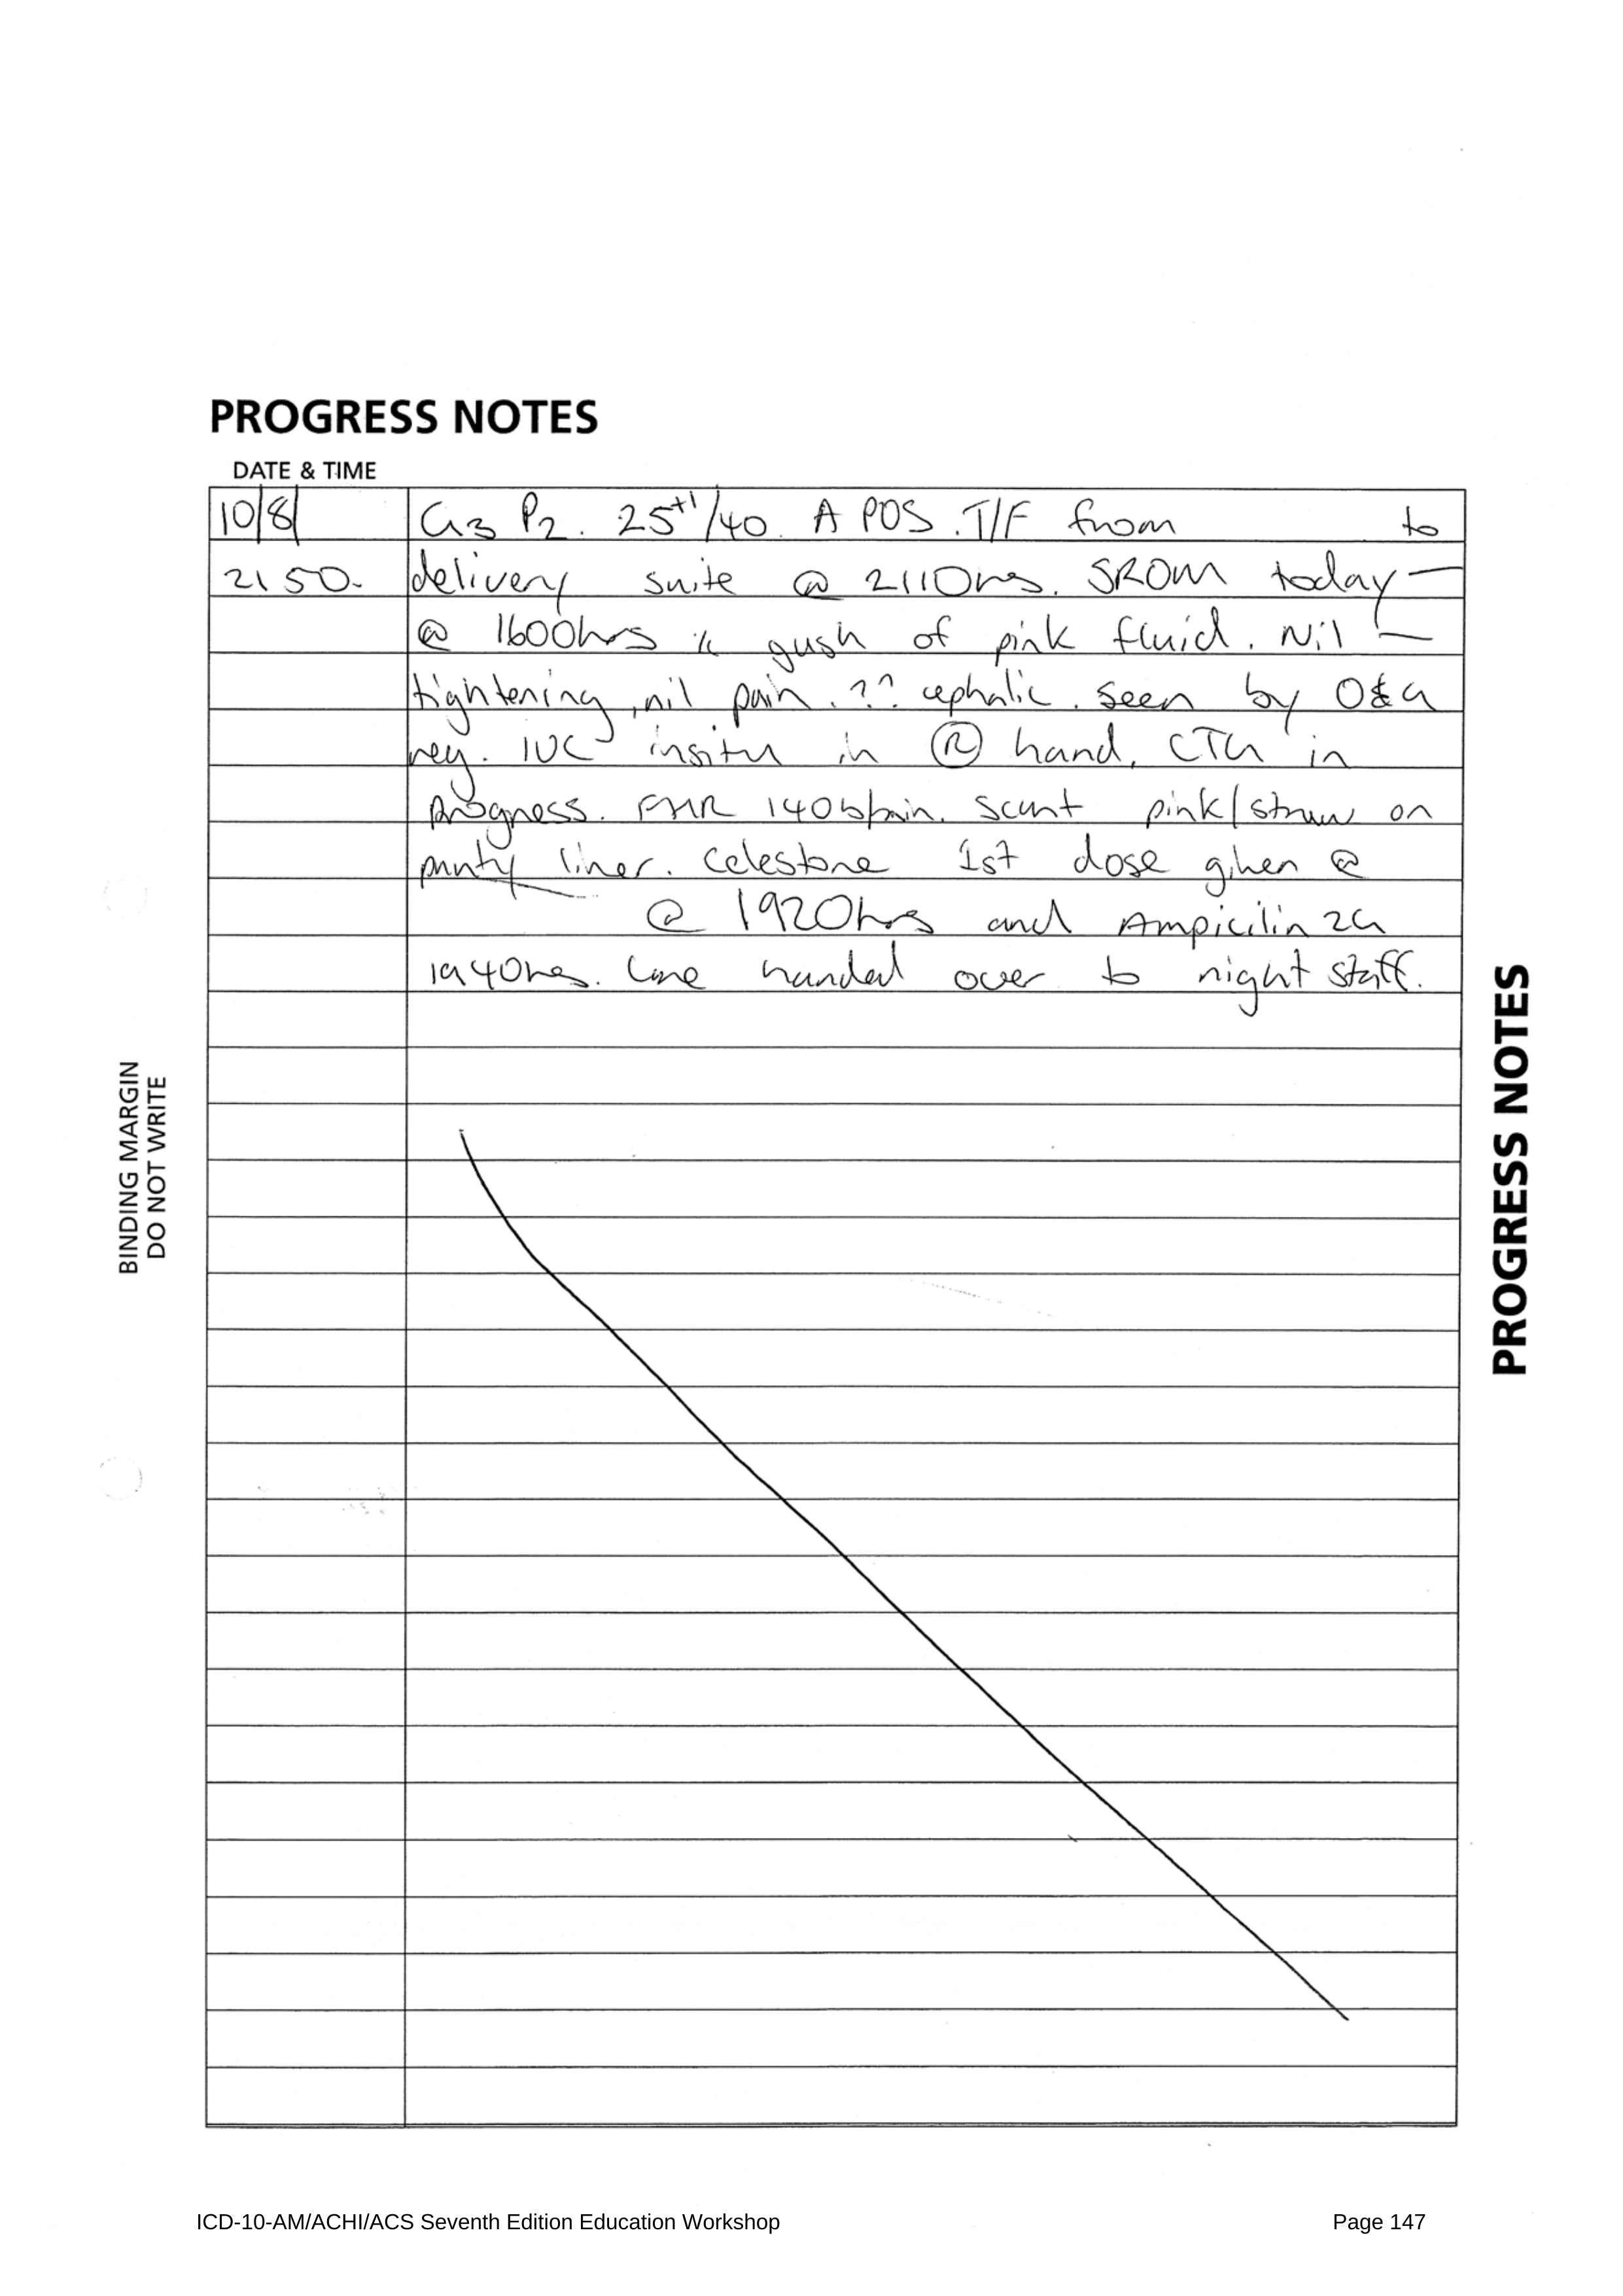 PROGRESS NOTES
DATE & TIME
10/8/ G3 P2. 25+1/40. A POS. T/F from to
2150. delivery suite @ 2110hrs. SROM today —
@ 1600hrs gush of pink fluid. Nil —
tightening, nil pain. ?? cephalic. seen by O&G
reg. IVC insitu in (R) hand, CTG in
progress. FHR 140b/min. Scant pink/straw on
panty liner. Celestone 1st dose given @
@ 1920hrs and Ampicilin 2G
1940hrs. Care handed over to night staff.
BINDING MARGIN
DO NOT WRITE
PROGRESS NOTES
ICD-10-AM/ACHI/ACS Seventh Edition Education Workshop Page 147